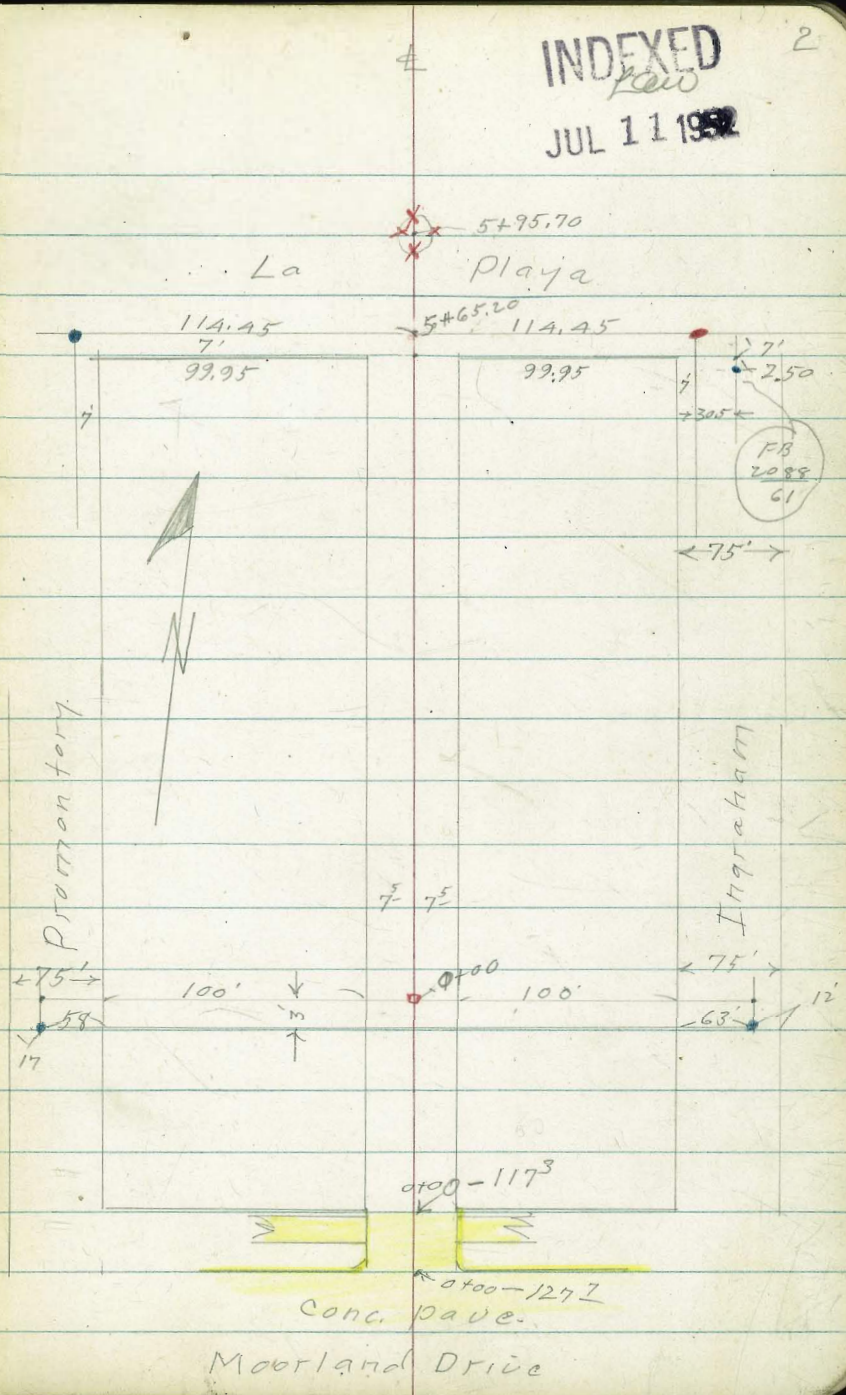 2
℄
INDEXED
JUL 11 1952
5+95.70
La Playa
5+65.20
114.45 114.45
7' 7'
99.95 99.95 2.50
7' 7'
→305←
FB
2088
61
←75'→
N
Promontory
Ingraham
7⁵ 7⁵
←75'→ ←75'→
0+00
100' 100'
3'
58 63' 12'
17
0+00-117³
0+00-127⁷
Conc. pave.
Moorland Drive